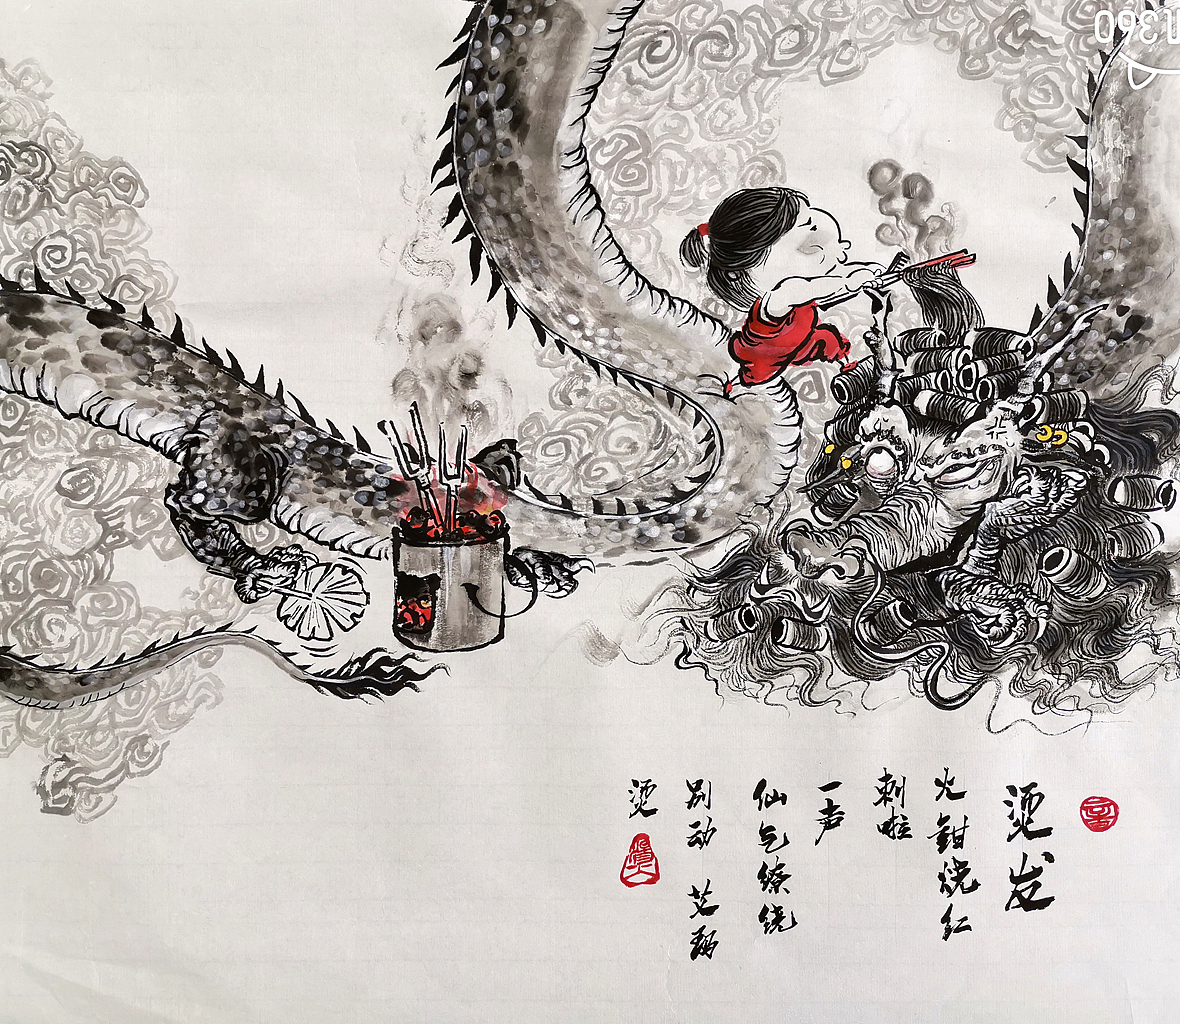 烫发
火钳烧红
刺啦
一声
仙气缭绕
别动 艾玛
烫